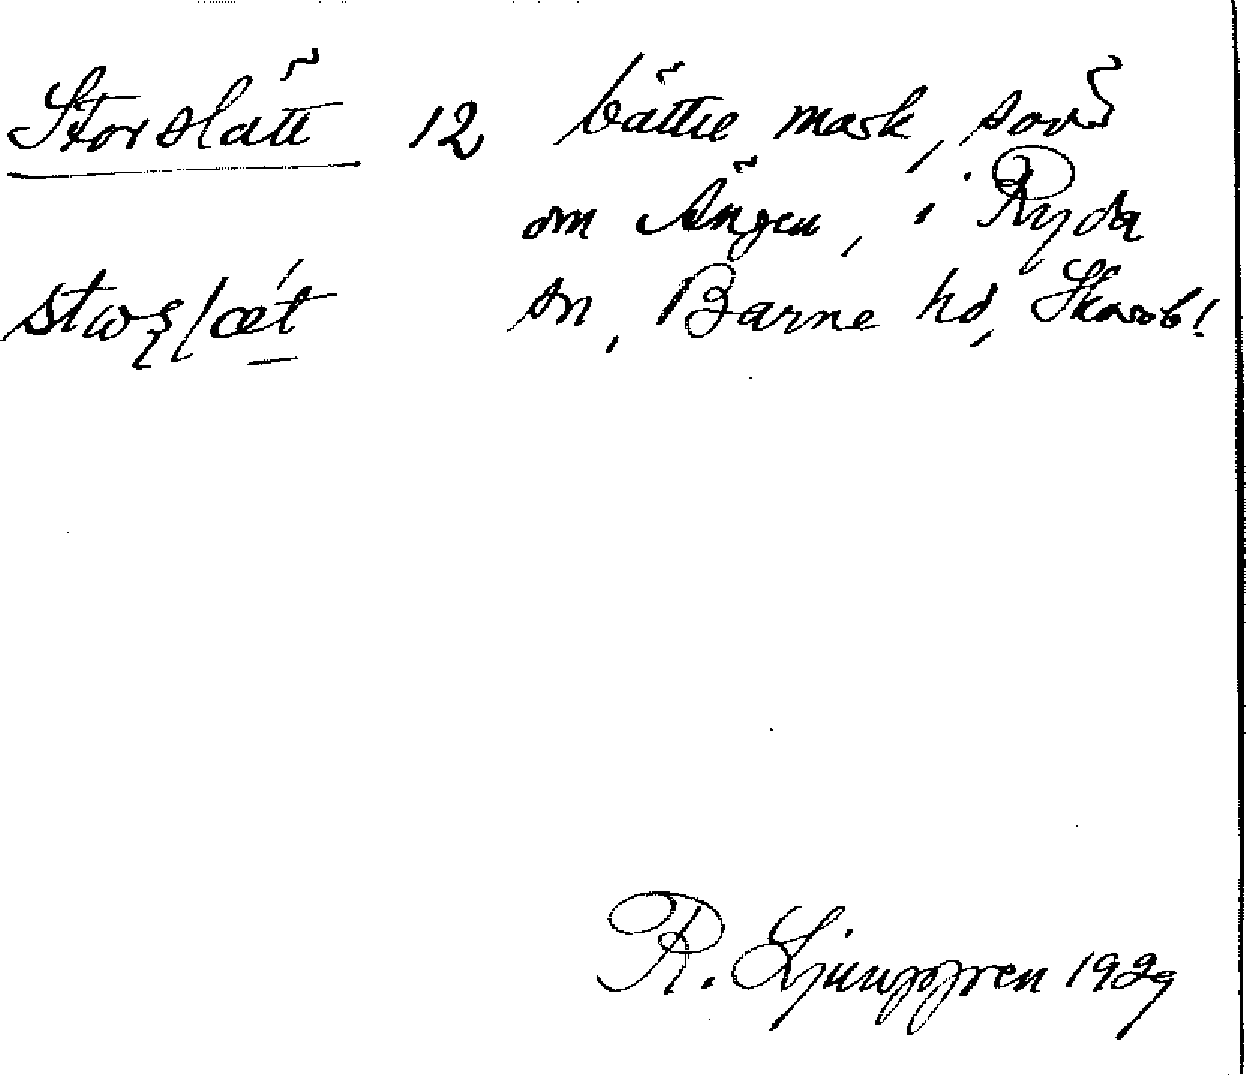 Storslätt 12 bättre mark, söd
om Ängen, i Ryda
sn, Barne hd, Skarab!
R. Ljunggren 1929